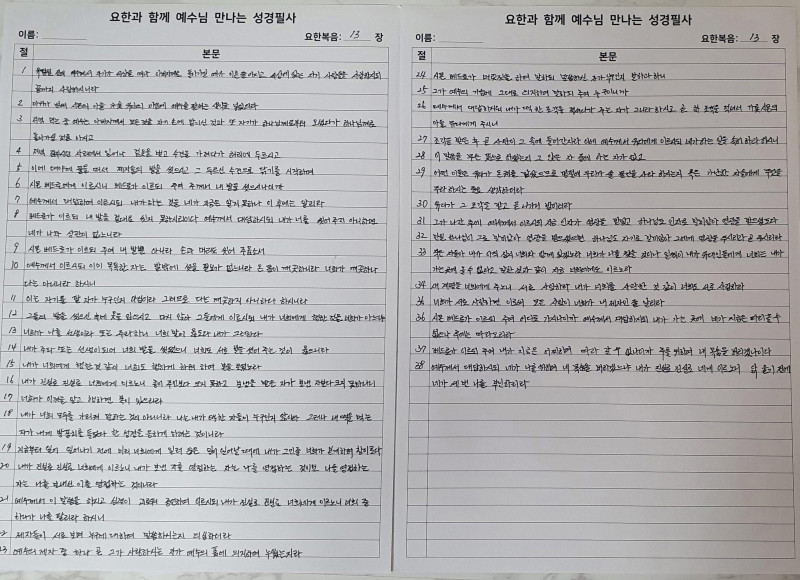 요한과 함께 예수님 만나는 성경필사
이름:
요한복음: 13 장
절 본문
1 유월절 전에 예수께서 자기가 세상을 떠나 아버지께로 돌아가실 때가 이른 줄 아시고 세상에 있는 자기 사람들을 사랑하시되
끝까지 사랑하시니라
2 마귀가 벌써 시몬의 아들 가룟 유다의 마음에 예수를 팔려는 생각을 넣었더라
3 저녁 먹는 중 예수는 아버지께서 모든 것을 자기 손에 맡기신 것과 또 자기가 하나님께로부터 오셨다가 하나님께로
돌아가실 것을 아시고
4 저녁 잡수시던 자리에서 일어나 겉옷을 벗고 수건을 가져다가 허리에 두르시고
5 이에 대야에 물을 떠서 제자들의 발을 씻으시고 그 두르신 수건으로 닦기를 시작하여
6 시몬 베드로에게 이르시니 베드로가 이르되 주여 주께서 내 발을 씻으시나이까
7 예수께서 대답하여 이르시되 내가 하는 것을 네가 지금은 알지 못하나 이 후에는 알리라
8 베드로가 이르되 내 발을 절대로 씻지 못하시리이다 예수께서 대답하시되 내가 너를 씻어 주지 아니하면
네가 나와 상관이 없느니라
9 시몬 베드로가 이르되 주여 내 발뿐 아니라 손과 머리도 씻어 주옵소서
10 예수께서 이르시되 이미 목욕한 자는 발밖에 씻을 필요가 없느니라 온 몸이 깨끗하니라 너희가 깨끗하나
다는 아니니라 하시니
11 이는 자기를 팔 자가 누구인지 아심이라 그러므로 다는 깨끗하지 아니하다 하시니라
12 그들의 발을 씻으신 후에 옷을 입으시고 다시 앉아 그들에게 이르시되 내가 너희에게 행한 것을 너희가 아느냐
13 너희가 나를 선생이라 또는 주라 하니 너희 말이 옳도다 내가 그러하다
14 내가 주와 또는 선생이 되어 너희 발을 씻었으니 너희도 서로 발을 씻어 주는 것이 옳으니라
15 내가 너희에게 행한 것 같이 너희도 행하게 하려 하여 본을 보였노라
16 내가 진실로 진실로 너희에게 이르노니 종이 주인보다 크지 못하고 보냄을 받은 자가 보낸 자보다 크지 못하나니
17 너희가 이것을 알고 행하면 복이 있으리라
18 내가 너희 모두를 가리켜 말하는 것이 아니니라 나는 내가 택한 자들이 누구인지 앎이라 그러나 내 떡을 먹는
자가 내게 발꿈치를 들었다 한 성경을 응하게 하려는 것이니라
19 지금부터 일이 일어나기 전에 미리 너희에게 일러 둠은 일이 일어날 때에 내가 그인 줄 너희가 믿게 하려 함이로라
20 내가 진실로 진실로 너희에게 이르노니 내가 보낸 자를 영접하는 자는 나를 영접하는 것이요 나를 영접하는
자는 나를 보내신 이를 영접하는 것이니라
21 예수께서 이 말씀을 하시고 심령이 괴로워 증언하여 이르시되 내가 진실로 진실로 너희에게 이르노니 너희 중
하나가 나를 팔리라 하시니
2 제자들이 서로 보며 누구에게 대하여 말씀하시는지 의심하더라
23 예수의 제자 중 하나 곧 그가 사랑하시는 자가 예수의 품에 의지하여 누웠는지라
요한과 함께 예수님 만나는 성경필사
이름:
요한복음: 13 장
절 본문
24 시몬 베드로가 머릿짓을 하여 말하되 말씀하신 자가 누구인지 말하라 하니
25 그가 예수의 가슴에 그대로 의지하여 말하되 주여 누구니이까
26 예수께서 대답하시되 내가 떡 한 조각을 적셔다 주는 자가 그니라 하시고 곧 한 조각을 적셔서 가룟 시몬의
아들 유다에게 주시니
27 조각을 받은 후 곧 사탄이 그 속에 들어간지라 이에 예수께서 유다에게 이르시되 네가 하는 일을 속히 하라 하시니
28 이 말씀을 무슨 뜻으로 하셨는지 그 앉은 자 중에 아는 자가 없고
29 어떤 이들은 유다가 돈궤를 맡았으므로 명절에 우리가 쓸 물건을 사라 하시는지 혹은 가난한 자들에게 무엇을
주라 하시는 줄로 생각하더라
30 유다가 그 조각을 받고 곧 나가니 밤이러라
31 그가 나간 후에 예수께서 이르시되 지금 인자가 영광을 받았고 하나님도 인자로 말미암아 영광을 받으셨도다
32 만일 하나님이 그로 말미암아 영광을 받으셨으면 하나님도 자기로 말미암아 그에게 영광을 주시리니 곧 주시리라
33 작은 자들아 내가 아직 잠시 너희와 함께 있겠노라 너희가 나를 찾을 것이나 일찍이 내가 유대인들에게 너희는 내가
가는 곳에 올 수 없다고 말한 것과 같이 지금 너희에게도 이르노라
34 새 계명을 너희에게 주노니 서로 사랑하라 내가 너희를 사랑한 것 같이 너희도 서로 사랑하라
35 너희가 서로 사랑하면 이로써 모든 사람이 너희가 내 제자인 줄 알리라
36 시몬 베드로가 이르되 주여 어디로 가시나이까 예수께서 대답하시되 내가 가는 곳에 네가 지금은 따라올 수
없으나 후에는 따라오리라
37 베드로가 이르되 주여 내가 지금은 어찌하여 따라갈 수 없나이까 주를 위하여 내 목숨을 버리겠나이다
38 예수께서 대답하시되 네가 나를 위하여 네 목숨을 버리겠느냐 내가 진실로 진실로 네게 이르노니 닭 울기 전에
네가 세 번 나를 부인하리라